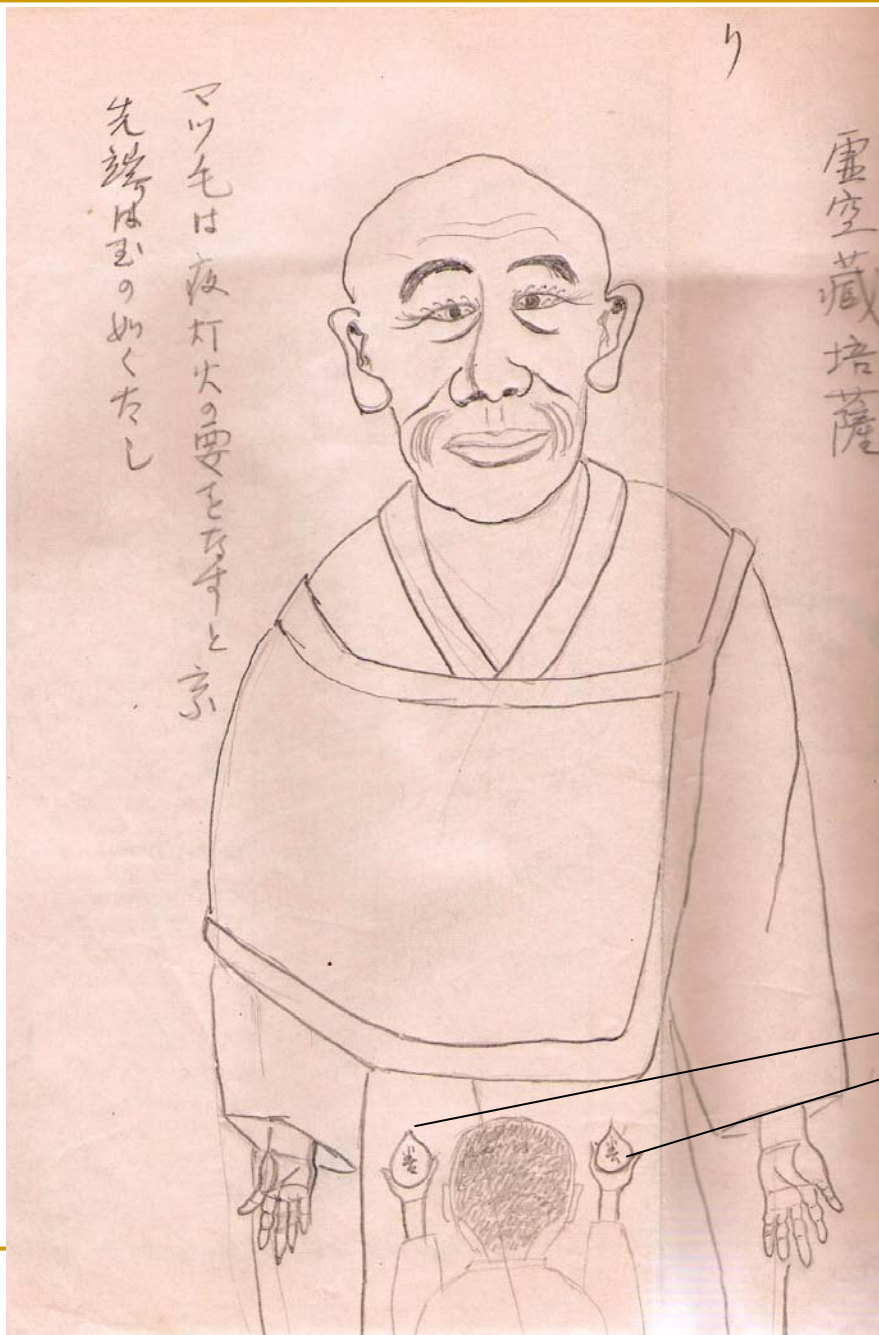 虚空蔵培薩
り
マツ毛は夜灯火の要をなすと
先端は玉の如くなし